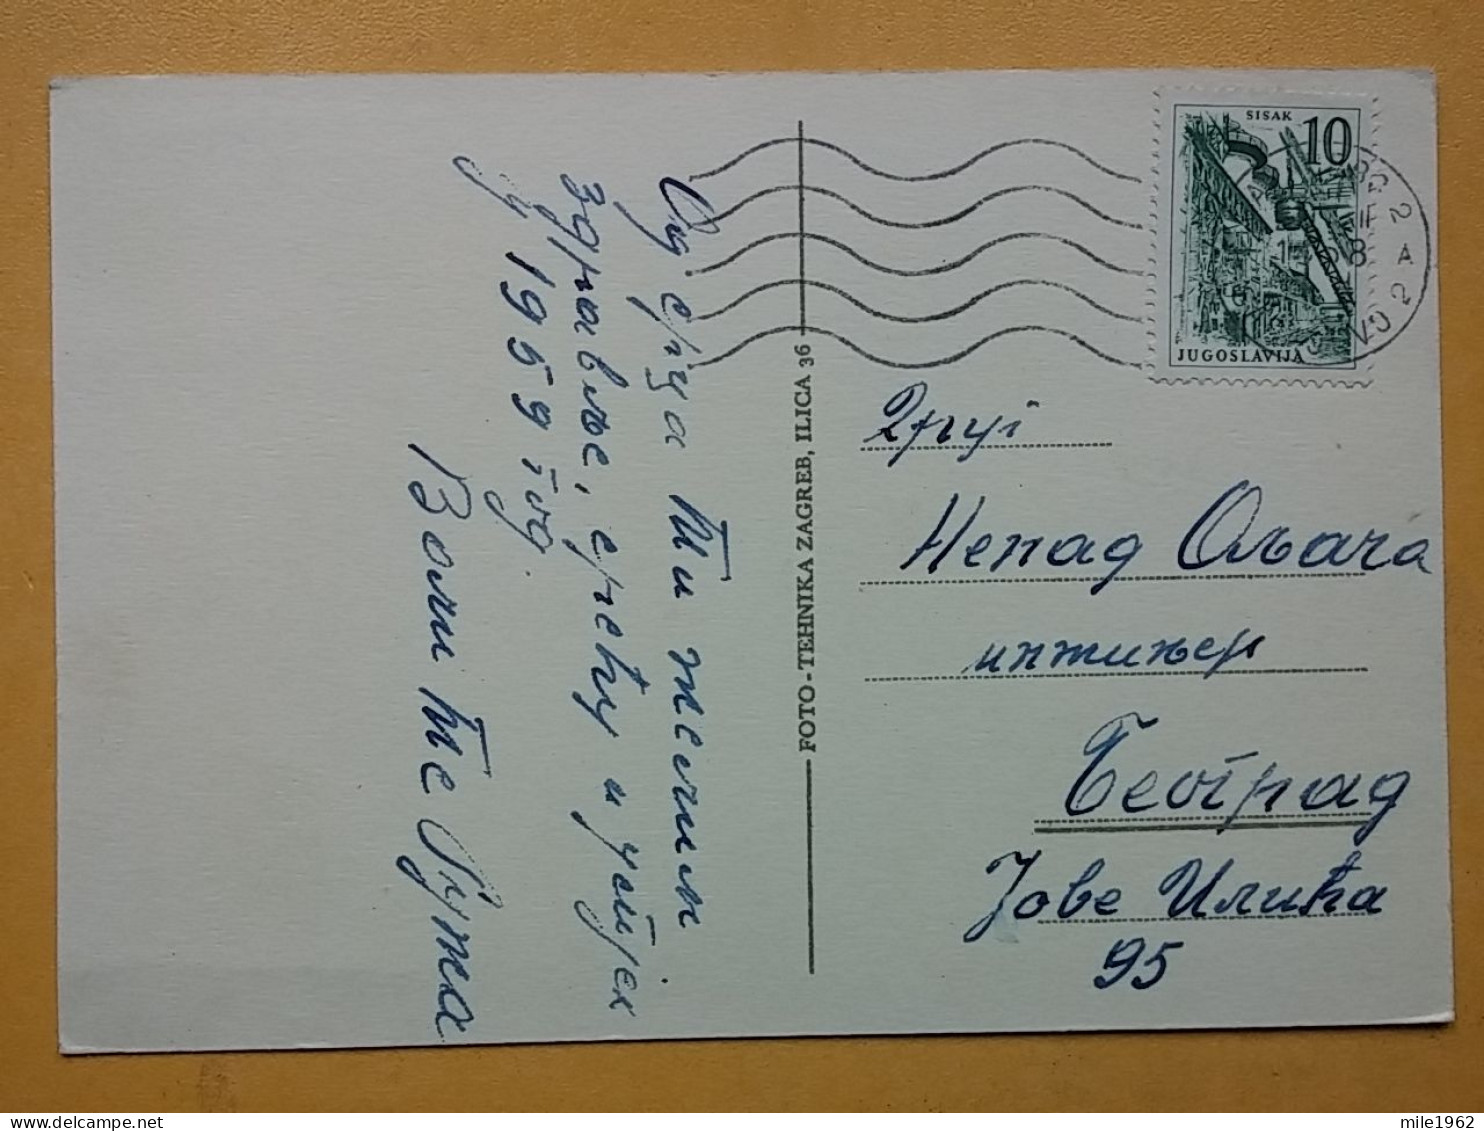 Од срца Ти желим
здравље, срећу и успјех
у 1959 год.
Воли те Ружа
FOTO-TEHNIKA ZAGREB, ILICA 36
SISAK 10
JUGOSLAVIJA
Друг
Ненад Ољача
инжињер
Београд
Јове Илића
95
mile1962